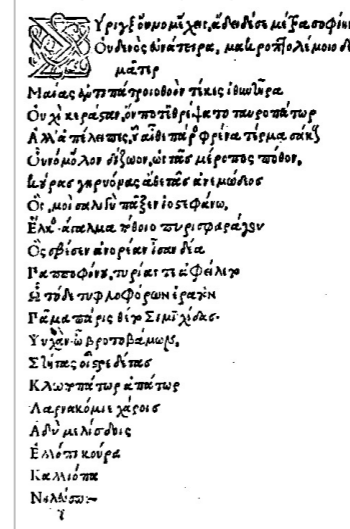 Σύριγξ οὔνομ' ἔχεις, ἄδει δέ σε μέτρα σοφίης
Οὐδενὸς εὐνάτειρα, μακροπτολέμοιο δὲ
μᾶτερ
Μαίας ἀντιπάτροιο θοὸν τέκες ἰθυντῆρα
Οὐχὶ κεράσταν, ὅν ποτε θρέψατο ταυροπάτωρ
Ἀλλ' πέλειπες, αἶθε πάρος φρένα τέρμα σάκους
Οὔνομ' ὅλον δίζωον, ὃς τᾶς μέροπος πόθον,
κούρας γηρυόνας ἄεθε τᾶς ἀνεμώδεος
Ὃς μοίσᾳ λιγὺ πᾶξεν ἰοστεφάνῳ,
Ἕλκος ἄγαλμα πόθοιο πυρισφαράγου
Ὃς σβέσεν ἀνορέαν ἰσαυδέα
Παπποφόνου, τυρίας τε ἀφείλετο
Ὧ τόδε τυφλοφόρων ἐρατὸν
Πᾶμα πάρις θέτο Σιμιχίδας.
Ψυχὰν ὦ βροτοβάμων,
Στήτας οἶστρε
Κλωποπάτωρ ἀπάτωρ
Λαρνακόγυιε χάροις
Ἁδὺ μελίσδοις
Ἔλλοπι κούρᾳ
Καλλιόπᾳ
Νηλεύστῳ:~
γ